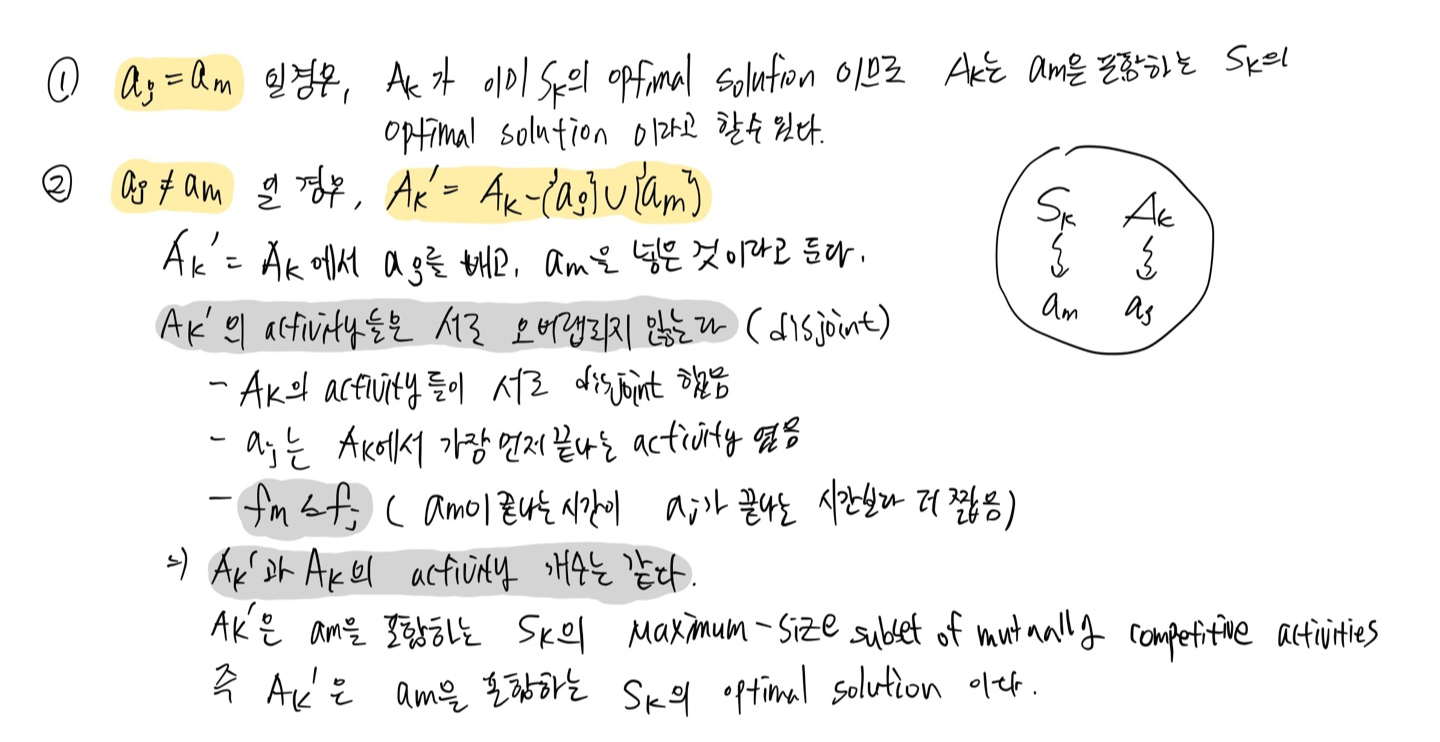 ① aj = am 일경우, Ak가 이미 Sk의 optimal solution 이므로 Ak는 am을 포함하는 Sk의
optimal solution 이라고 할수 있다.
② aj ≠ am 일 경우, Ak' = Ak - {aj} ∪ {am}
Ak' = Ak에서 aj를 빼고, am을 넣은 것이라고 둔다.
Ak'의 activity들은 서로 오버랩되지 않는다 (disjoint)
- Ak의 activity들이 서로 disjoint 했음
- aj는 Ak에서 가장 먼저 끝나는 activity 였음
- fm ≤ fj ( am이 끝나는 시간이 aj가 끝나는 시간보다 더 짧음)
=) Ak'과 Ak의 activity 개수는 같다.
Ak'은 am을 포함하는 Sk의 maximum-size subset of mutually competitive activities
즉 Ak'은 am을 포함하는 Sk의 optimal solution 이다.
Sk Ak
am aj